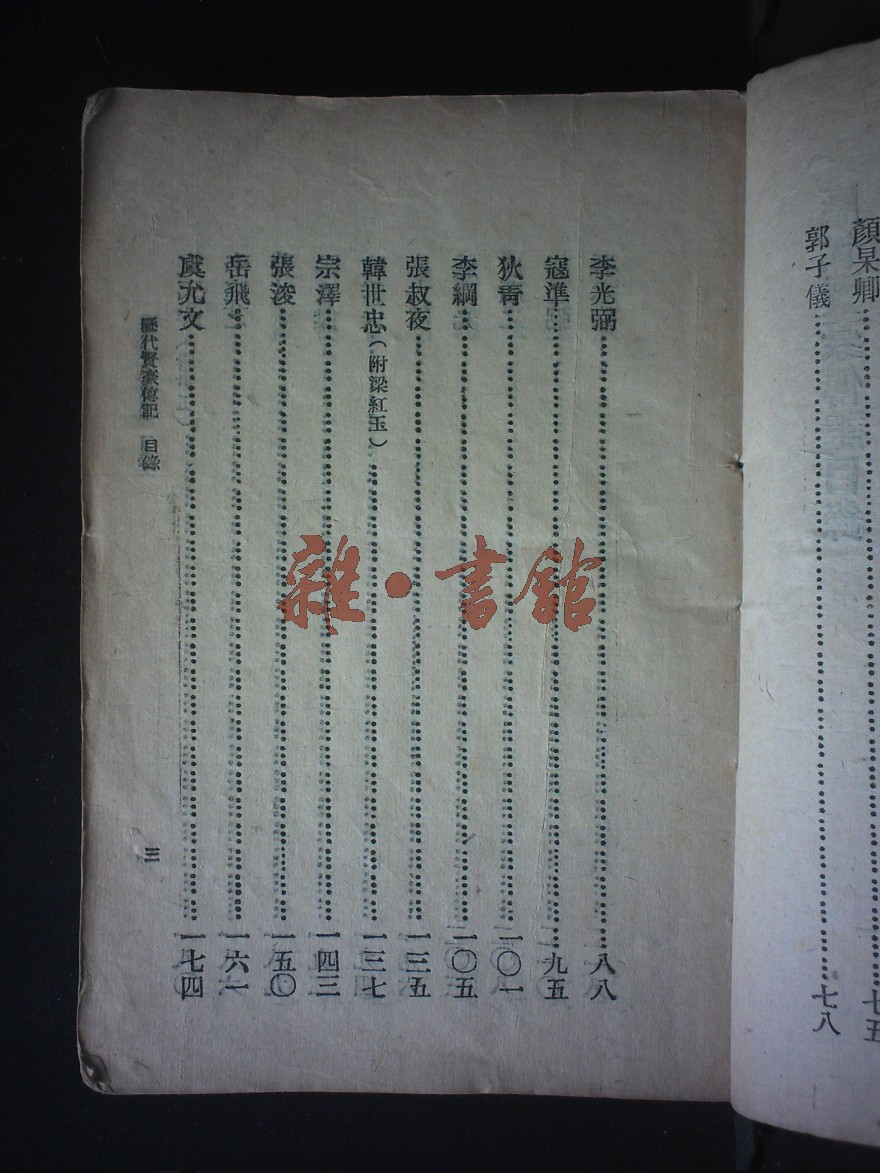 顏杲卿……七五
郭子儀……七八
李光弼……八八
寇準……九五
狄青……一〇一
李綱……一〇五
張叔夜……一三五
韓世忠（附梁紅玉）……一三七
宗澤……一四三
張浚……一五〇
岳飛……一六一
虞允文……一七四
歷代賢豪傳記 目錄
三
雜·書館